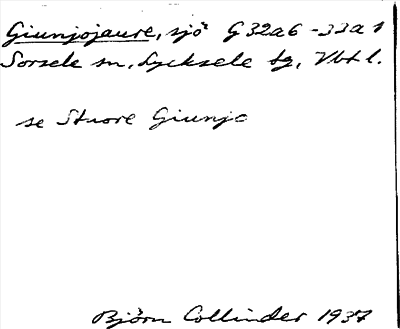 Giunjojaure, sjö G 32a6 - 33a1
Sorsele sn, Lycksele tg, Vbtl.
se Stuore Giunjo
Björn Collinder 1937